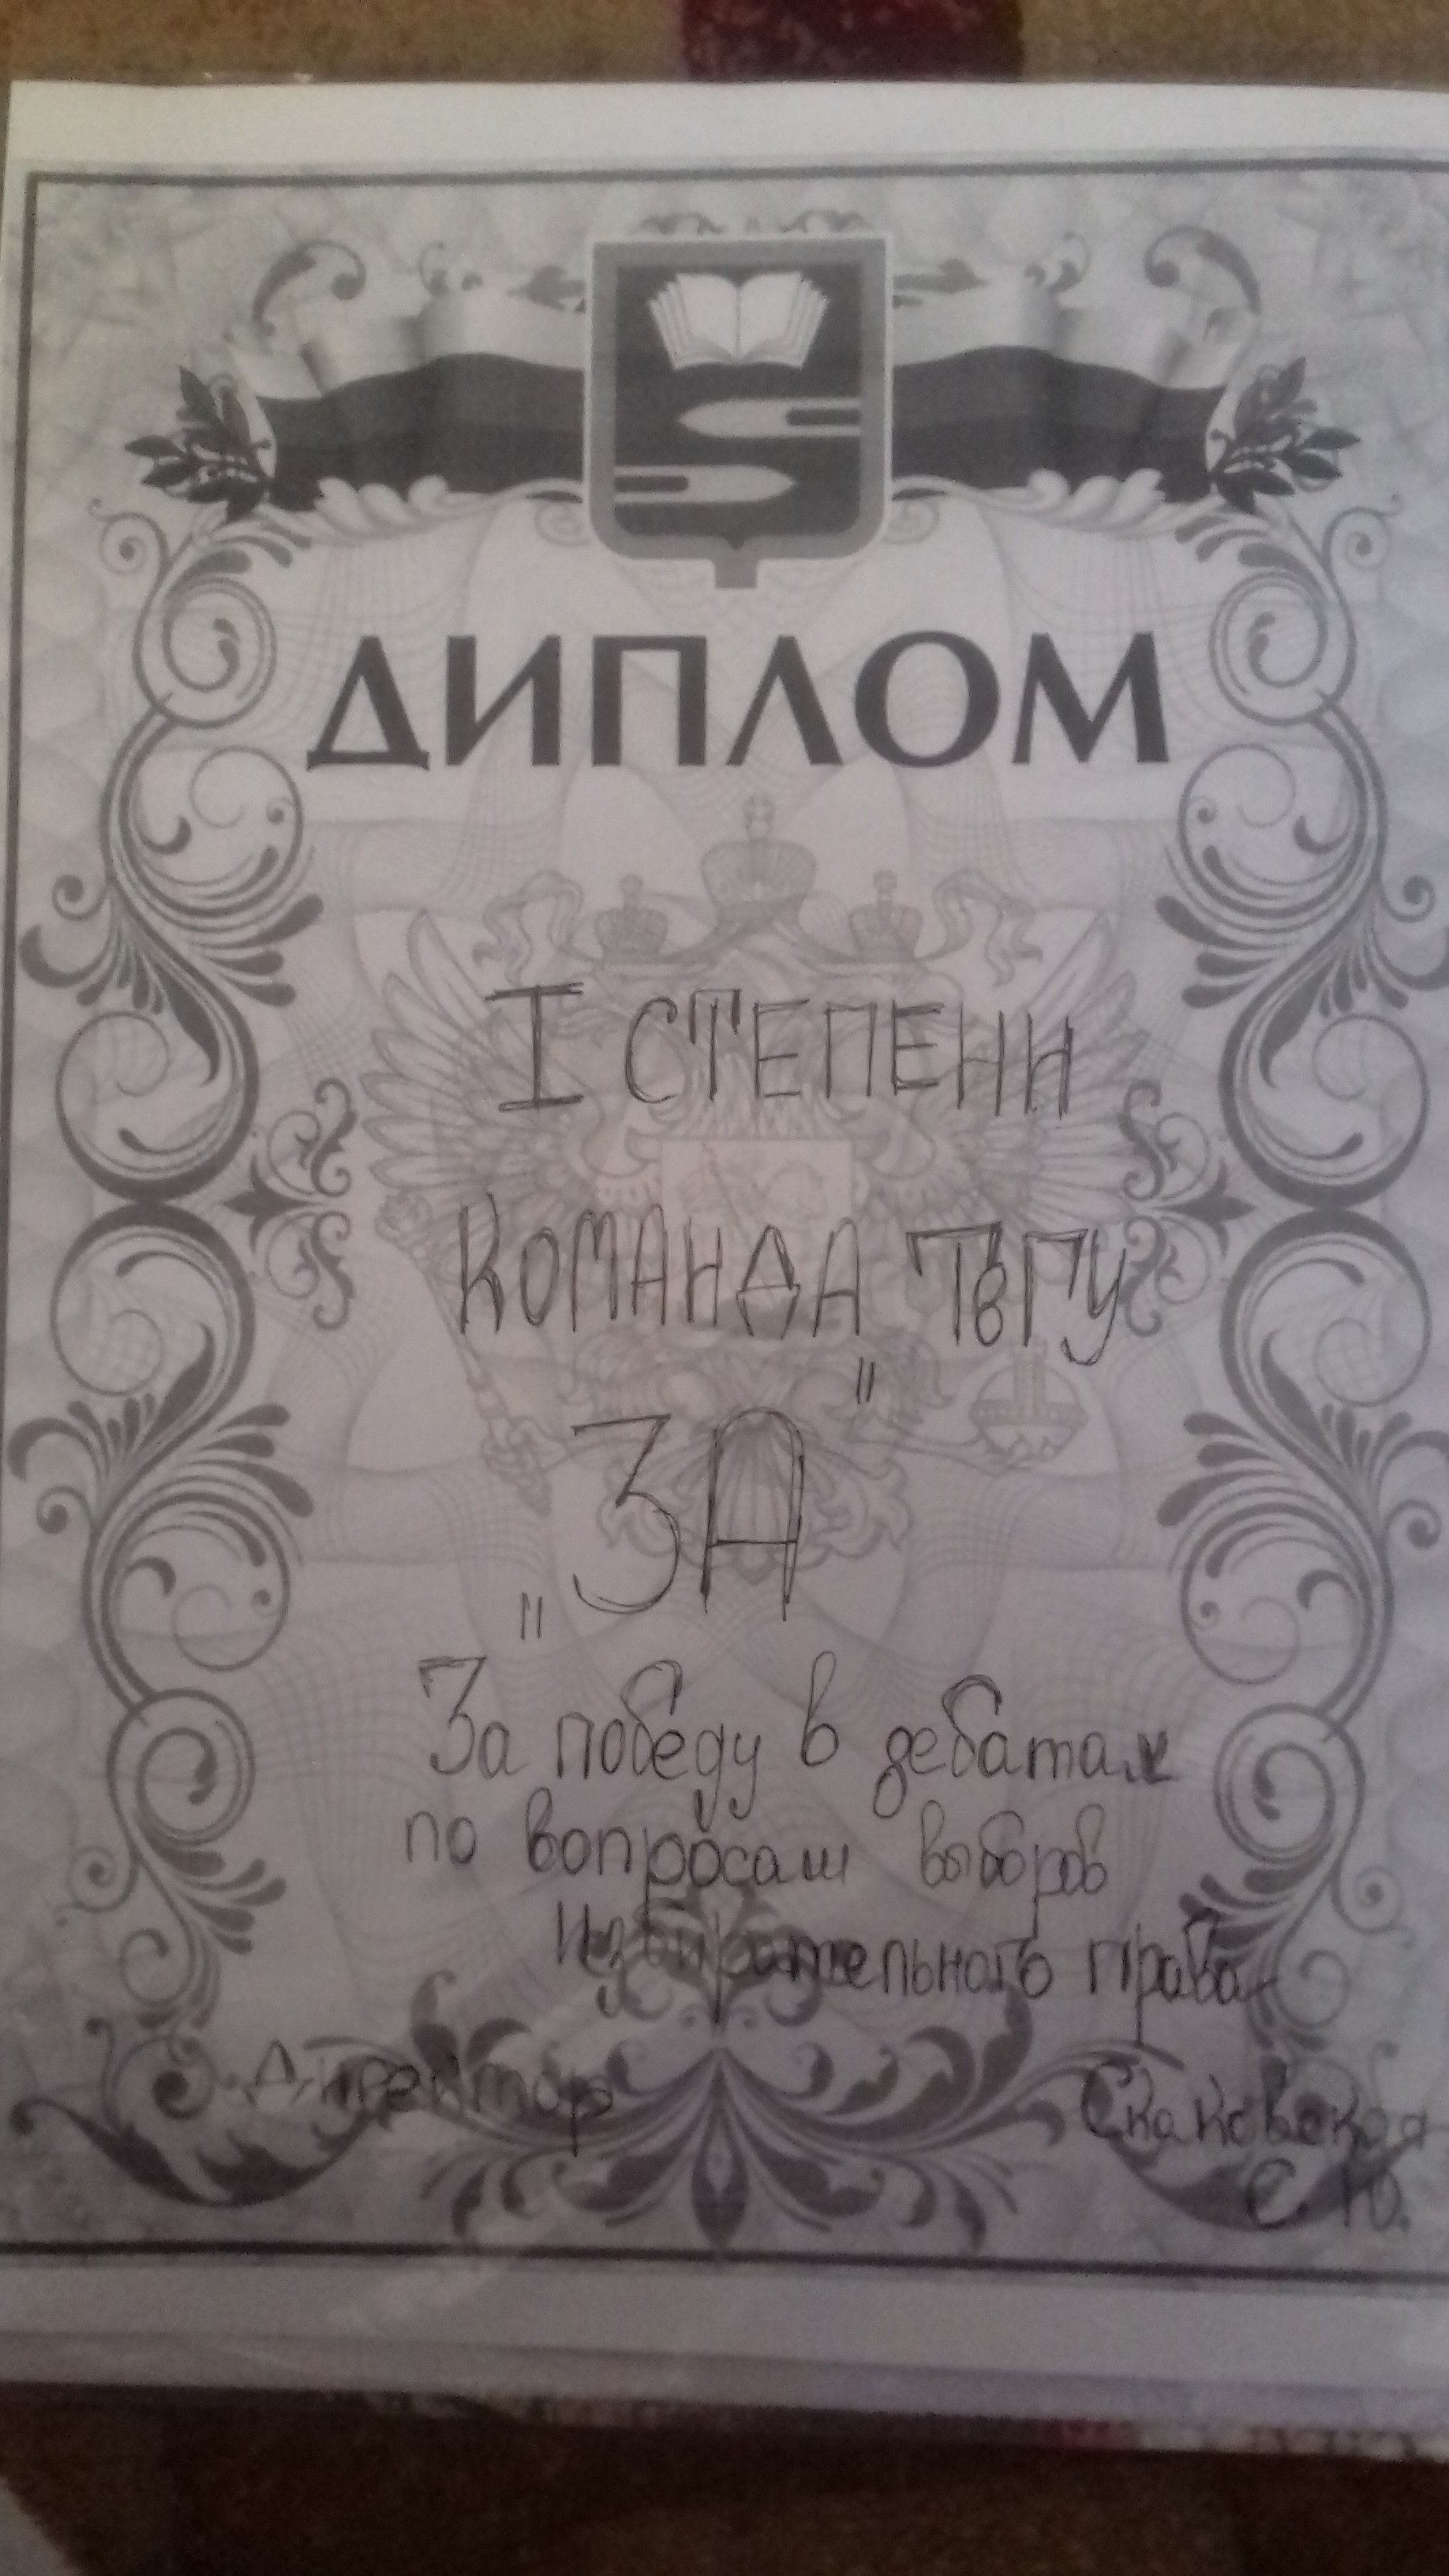 ДИПЛОМ
I СТЕПЕНИ
КОМАНДА ТвГУ
„ЗА"
За победу в дебатах
по вопросам выборов
избирательного права
Директор Скаковская
С. Ю.